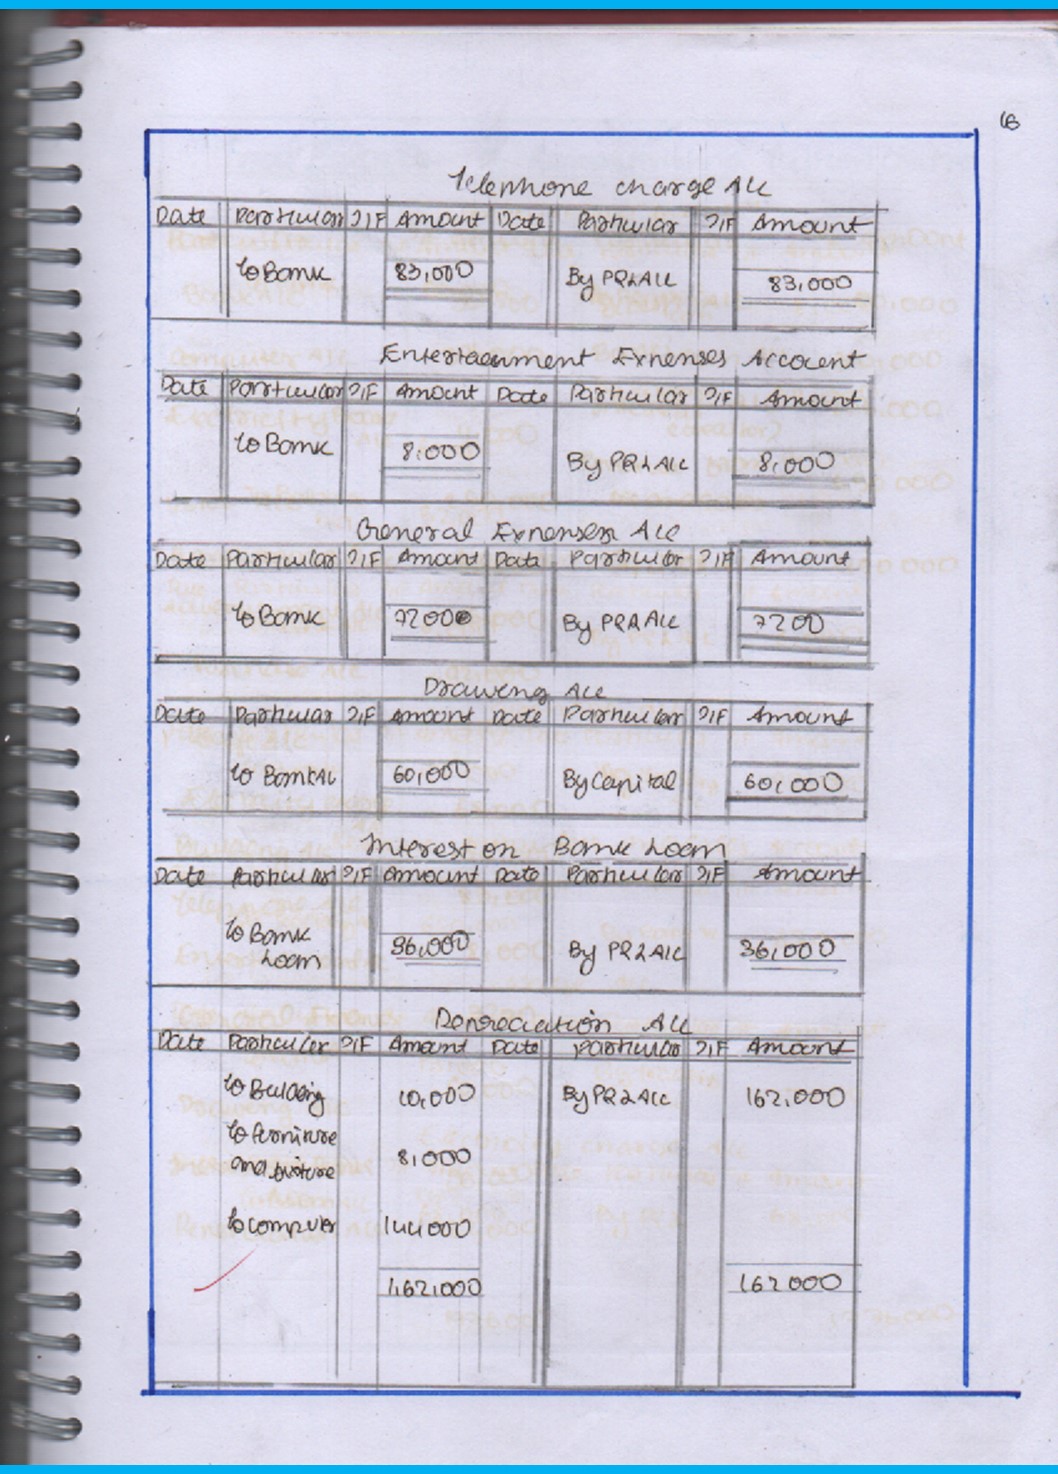 16
Telephone charge A/c
Date Particular J/F Amount Date Particular J/F Amount
To Bank 83,000 By P&L A/c 83,000
Entertainment Expenses Account
Date Particular J/F Amount Date Particular J/F Amount
To Bank 8,000 By P&L A/c 8,000
General Expenses A/c
Date Particular J/F Amount Date Particular J/F Amount
To Bank 7200 By P&L A/c 7200
Drawing A/c
Date Particular J/F Amount Date Particular J/F Amount
To Bank A/c 60,000 By Capital 60,000
Interest on Bank Loan
Date Particular J/F Amount Date Particular J/F Amount
To Bank
Loan 36,000 By P&L A/c 36,000
Depreciation A/c
Date Particular J/F Amount Date Particular J/F Amount
To Building 10,000 By P&L A/c 162,000
To furniture
and fixture 8,000
To computer 144000
1,62,000 162000